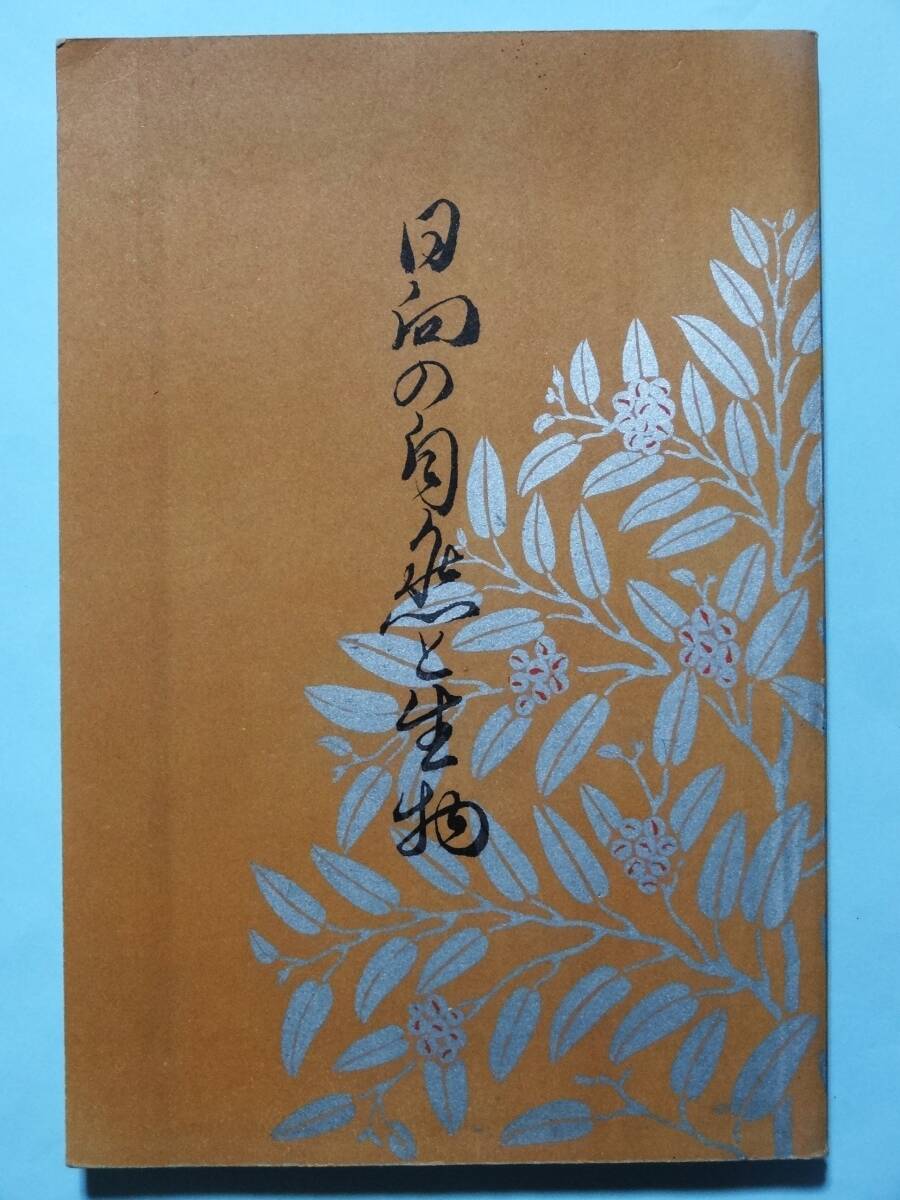 日向の自然と生物